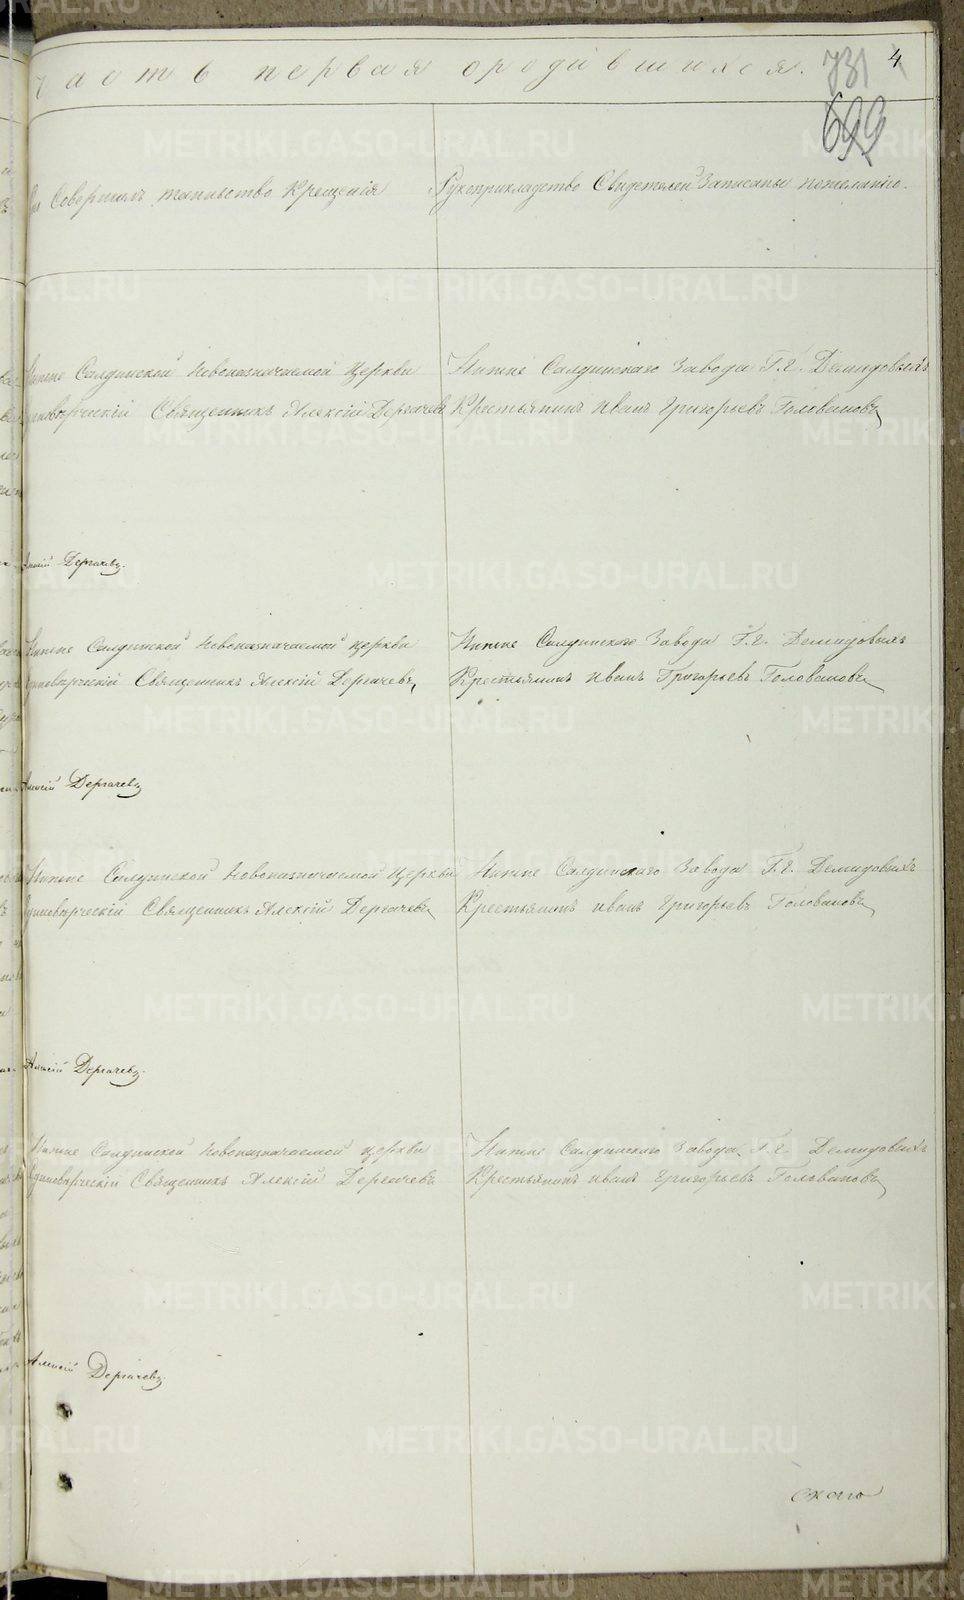 часть первая ородившихся.
731
4
699
Совершилъ таинство Крещенія
Рукоприкладство Свидетелей Записаны пожеланію.
Нижне Салдинской Новоназначаемой Церкви
Единоверческій Священникъ Алексій Дергачевъ
Нижне Салдинскаго Завода Г.г. Демидовыхъ
Крестьянинъ Иванъ Григорьевъ Головановъ
Алексій Дергачевъ.
Нижне Салдинской Новоназначаемой церкви
Единоверческій Священникъ Алексій Дергачевъ,
Нижне Салдинскаго Завода Г.г. Демидовыхъ
Крестьянинъ Иванъ Григорьевъ Головановъ
Алексій Дергачевъ
Нижне Салдинской Новоназначаемой Церкви
Единоверческій Священникъ Алексій Дергачевъ
Нижне Салдинскаго Завода Г.г. Демидовыхъ
Крестьянинъ Иванъ Григорьевъ Головановъ
Алексій Дергачевъ.
Нижне Салдинской Новоназначаемой церкви
Единоверческій Священникъ Алексій Дергачевъ
Нижне Салдинскаго Завода Г.г. Демидовыхъ
Крестьянинъ Иванъ Григорьевъ Головановъ
Алексій Дергачевъ.
METRIKI.GASO-URAL.RU